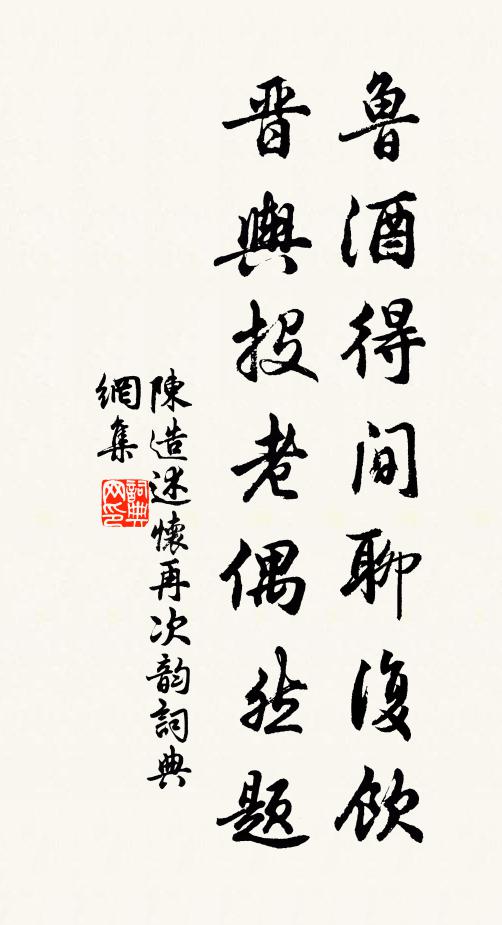 魯酒得间聊復飲
晉輿投老偶然題
陳造述懷再次韵詞典
網集
詞典
网印